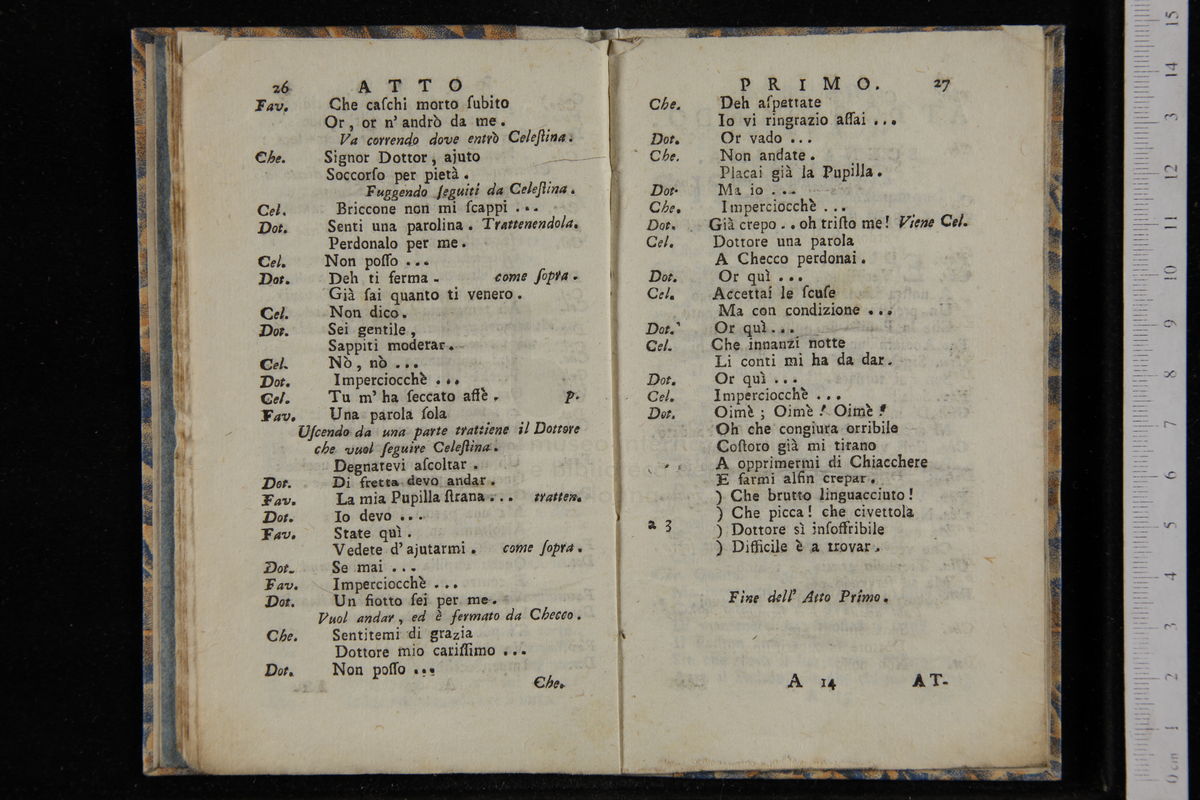 26 ATTO
Fav. Che caſchi morto ſubito
Or, or n' andrò da me.
Va correndo dove entrò Celeſtina.
Che. Signor Dottor, ajuto
Soccorſo per pietà.
Fuggendo ſeguiti da Celeſtina.
Cel. Briccone non mi ſcappi ...
Dot. Senti una parolina. Trattenendola.
Perdonalo per me.
Cel. Non poſſo ...
Dot. Deh ti ferma - come ſopra.
Già ſai quanto ti venero.
Cel. Non dico.
Dot. Sei gentile,
Sappiti moderar.
Cel. Nò, nò ...
Dot. Imperciocchè ...
Cel. Tu m' ha ſeccato affè. p.
Fav. Una parola ſola
Uſcendo da una parte trattiene il Dottore
che vuol ſeguire Celeſtina.
Degnatevi aſcoltar.
Dot. Di fretta devo andar.
Fav. La mia Pupilla ſtrana ... tratten.
Dot. Io devo ...
Fav. State quì.
Vedete d' ajutarmi. come ſopra.
Dot. Se mai ...
Fav. Imperciocchè ...
Dot. Un fiotto ſei per me.
Vuol andar, ed è fermato da Checco.
Che. Sentitemi di grazia
Dottore mio cariſſimo ...
Dot. Non poſſo ...
Che.
PRIMO. 27
Che. Deh aſpettate
Io vi ringrazio aſſai ...
Dot. Or vado ...
Che. Non andate.
Placai già la Pupilla.
Dot. Ma io ...
Che. Imperciocchè ...
Dot. Già crepo .. oh triſto me! Viene Cel.
Cel. Dottore una parola
A Checco perdonai.
Dot. Or quì ...
Cel. Accettai le ſcuſe
Ma con condizione ...
Dot. Or quì ...
Cel. Che innanzi notte
Li conti mi ha da dar.
Dot. Or quì ...
Cel. Imperciocchè ...
Dot. Oimè; Oimè! Oimè!
Oh che congiura orribile
Coſtoro già mi tirano
A opprimermi di Chiacchere
E farmi alfin crepar.
) Che brutto linguacciuto!
) Che picca! che civettola
a 3 ) Dottore sì inſoffribile
) Difficile è a trovar.
Fine dell' Atto Primo.
A 14 AT-
15
14
13
12
11
10
9
8
7
6
5
4
3
2
1
0 cm